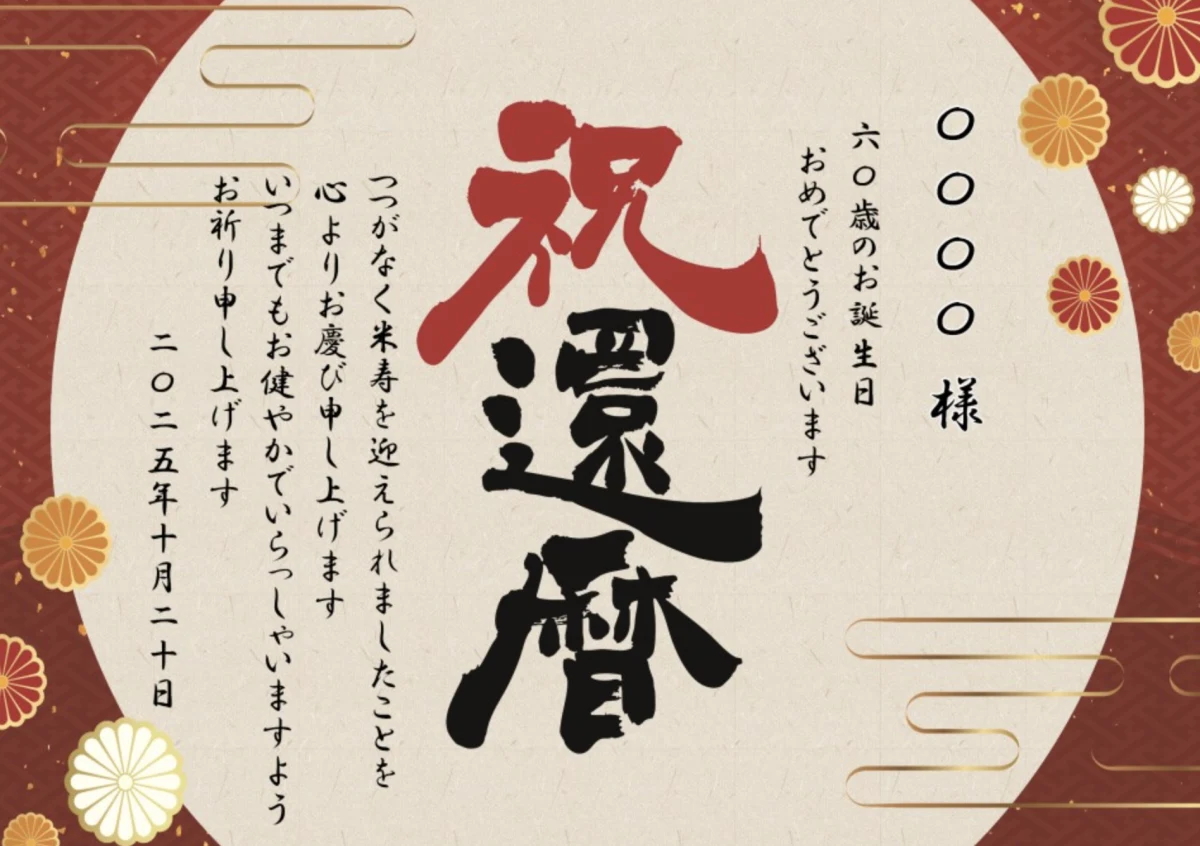 〇〇〇〇 様
六〇歳のお誕生日
おめでとうございます
祝
還暦
つつがなく米寿を迎えられましたことを
心よりお慶び申し上げます
いつまでもお健やかでいらっしゃいますよう
お祈り申し上げます
二〇二五年十月二十日